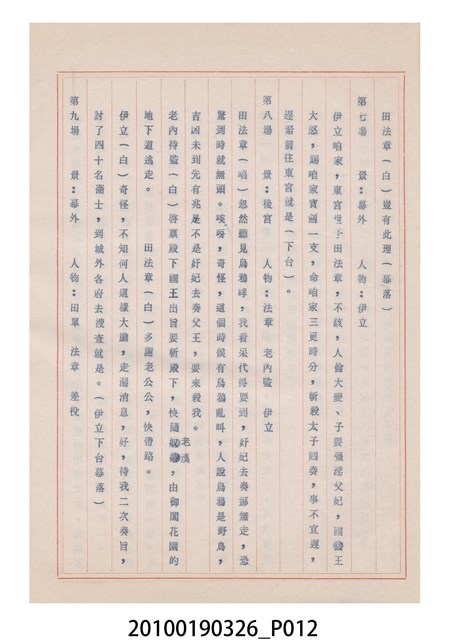 田法章(白)豈有此理(幕落)
第七場 景:幕外 人物:伊立
伊立咱家,東宮世子田法章,不該,人倫大變、子要彌淫父妃,國王
大怒,賜咱家寶劍一支,命咱家三更時分,斬殺太子回奏,事不宜遲,
趕緊前往東宮就是(下台)。
第八場 景:後宮 人物:法章 老內監 伊立
田法章(唱)忽然聽見烏鴉呼,我看呆代得要到,奸妃去奏無走,恐
驚到時就無頭。咳呀,奇怪,這個時候有烏鴉亂叫,人說烏鴉是野鳥,
吉凶未到先有兆是不是奸妃去奏父王,要來殺我。
老內侍監(白)啓稟殿下國王出旨要斬殿下,快隨老漢,由御閣花園的
地下道逃走。 田法章(白)多謝老公公,快帶路。
伊立(白)奇怪,不知何人這樣大膽,走漏消息,好,待我二次奏旨,
討了四十名衛士,到城外各府去搜查就是。(伊立下台幕落)
第九場 景:幕外 人物:田單 法章 差役
20100190326_P012